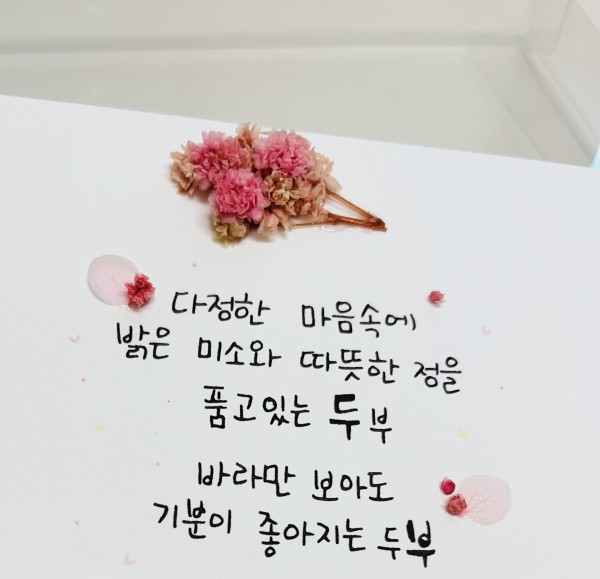 다정한 마음속에
밝은 미소와 따뜻한 정을
품고있는 두부
바라만 보아도
기분이 좋아지는 두부